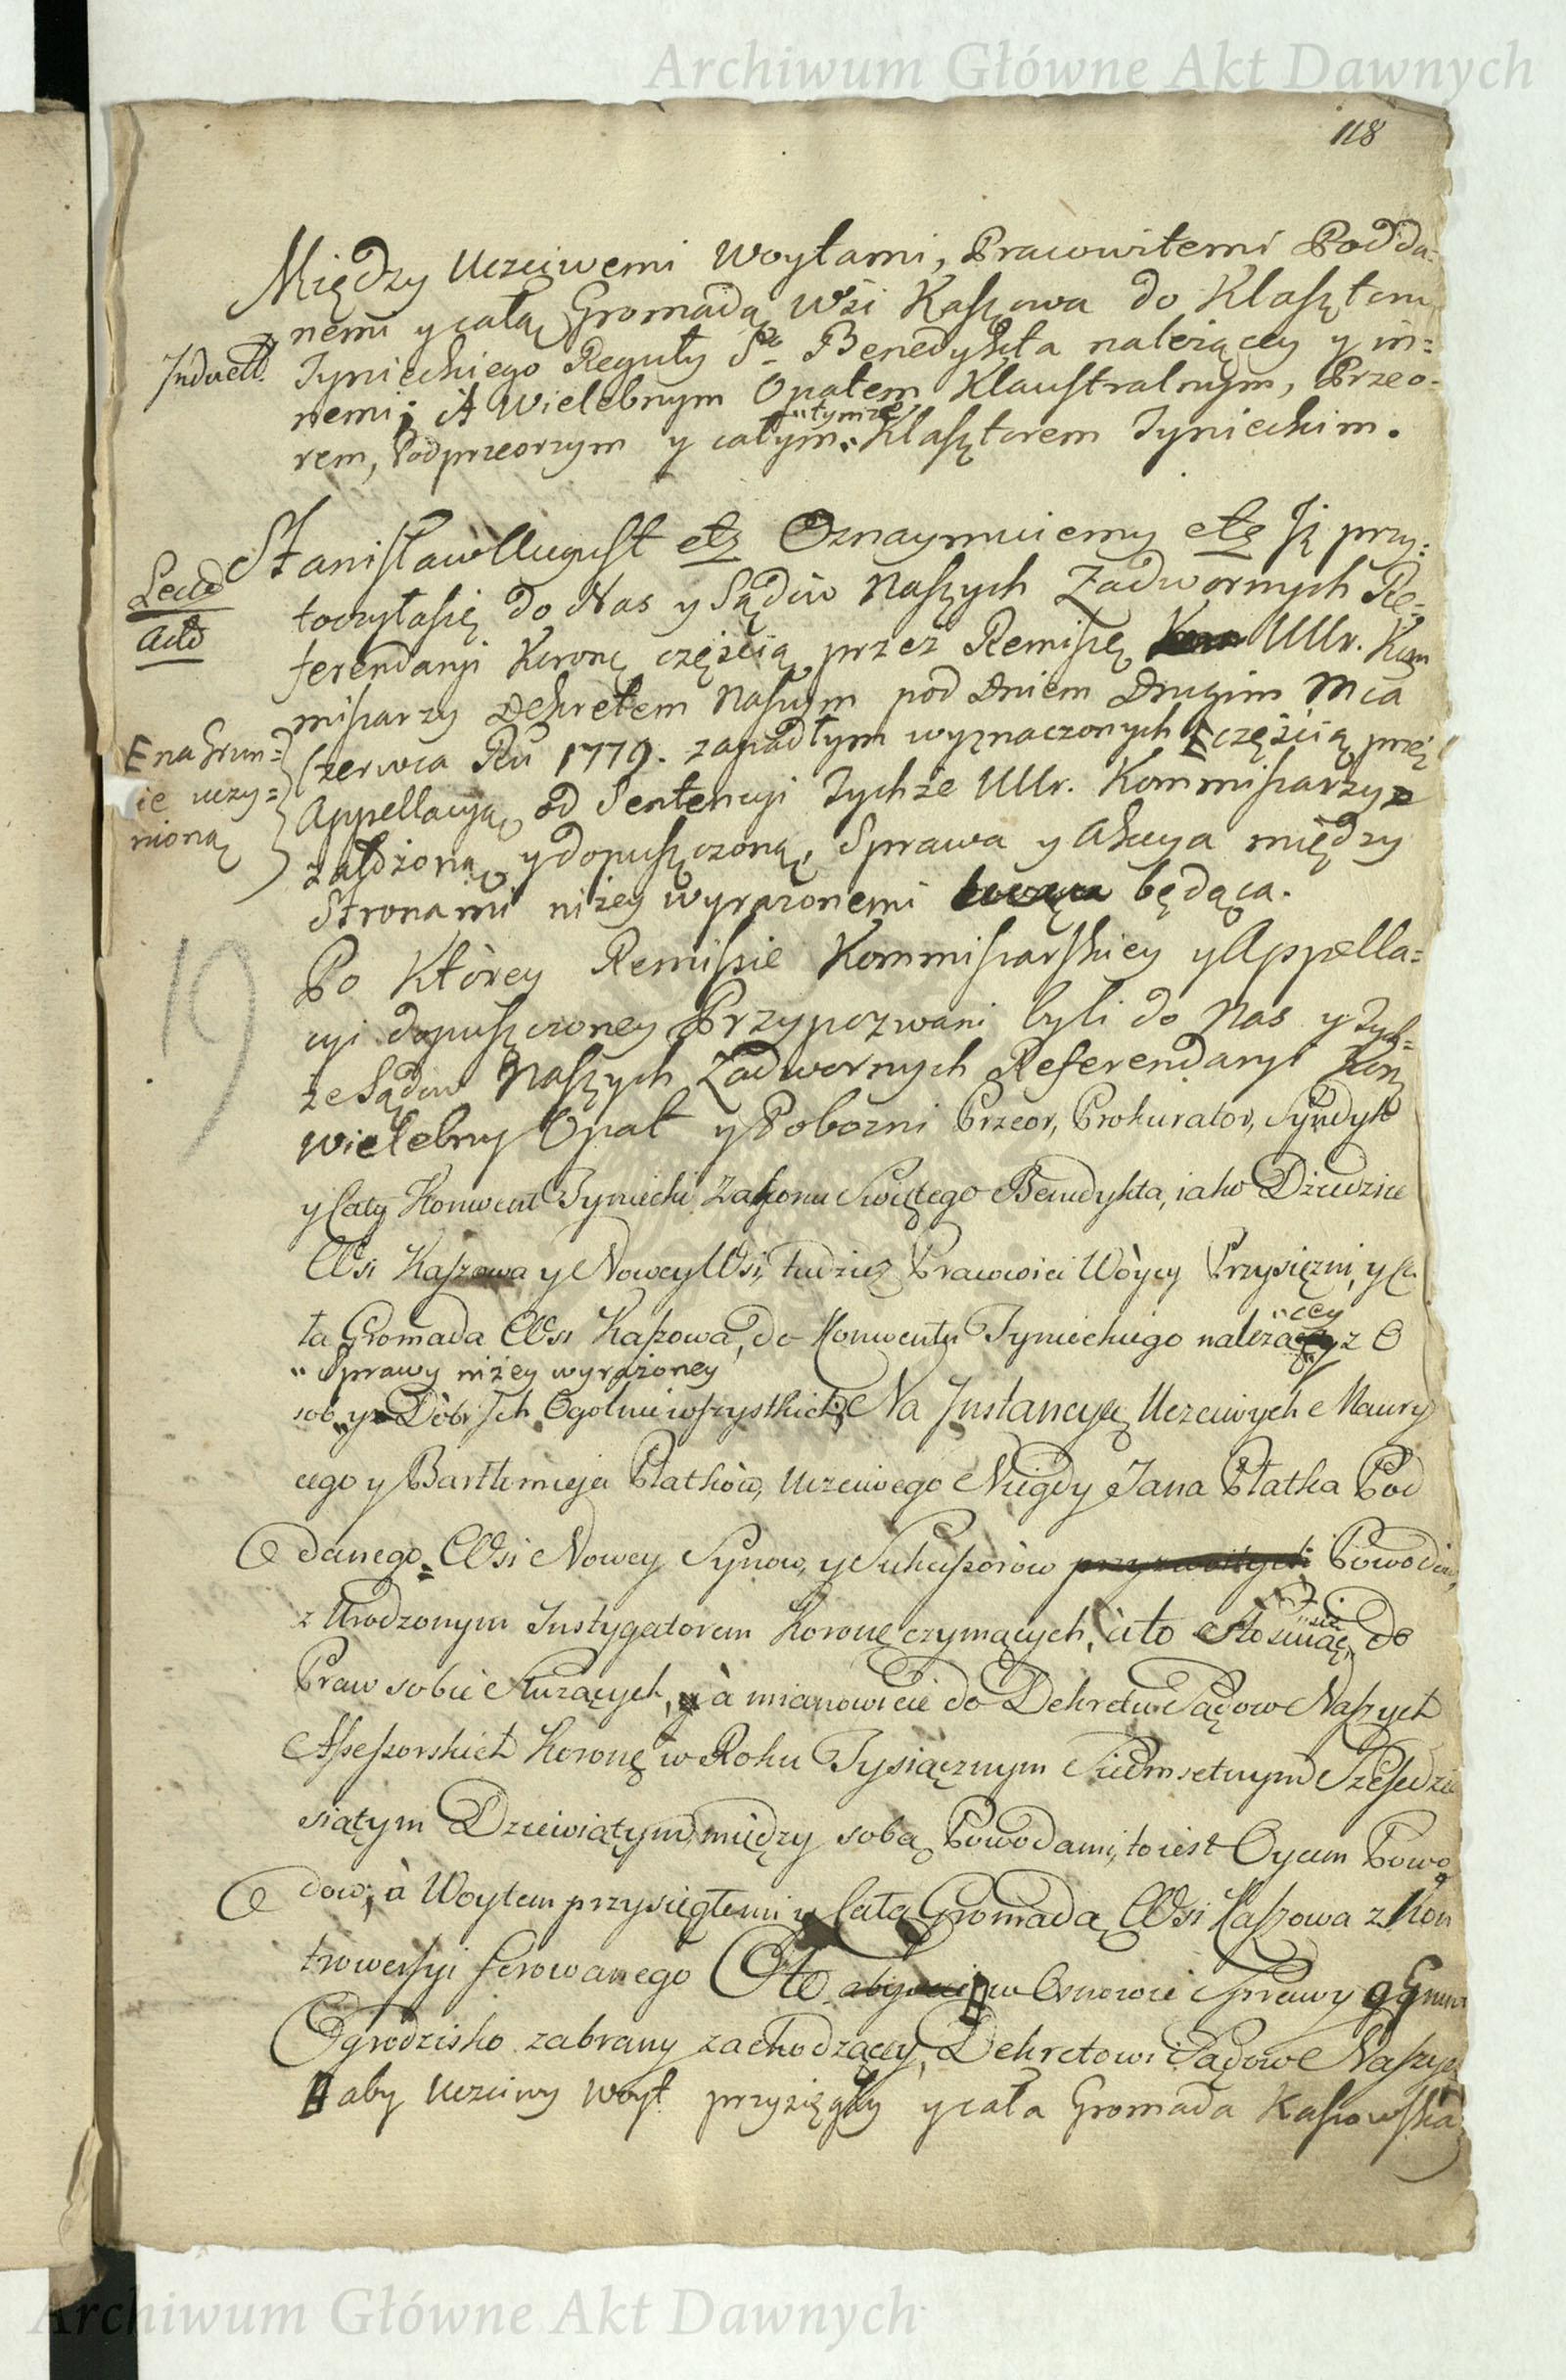 Archiwum Główne Akt Dawnych
118
Między Uczciwemi Woytami, Pracowitemi Podda-
nemi y całą Gromadą Wsi Kaszowa do Klasztoru
Induct.
Tynieckiego Reguły S°. Benedykta należącey y in:
nemi; A Wielebnym Opatem Klaustralnym, Przeo-
"tymże
rem, Podprzeorzym y całym Klasztorem Tynieckim.
Stanisław August etc Oznaymuiemy etc Iż przy:
Lect
act
toczyłasię do Nas y Sądów Naszych Zadwornych Re-
ferendaryi Koronę częścią przez Remissę UUr. Kom
missarzy Dekretem Naszym pod Dniem Drugim Mca
Czerwca Ru 1779. zapadłym wyznaczonych częścią przez
E na Grun=
cie uczy=
nioną
Appellacyą od Sentencyi Tychże UUr. Kommissarzy
założoną y dopuszczoną, Sprawa y Akcya między
Stronami niżey wyrażonemi będąca.
19
Po Którey Remissie Kommissarskiey y Appella=
cyi dopuszczoney Przypozwani byli do Nas y Tych=
że Sądów Naszych Zadwornych Referendaryi Korę
Wielebny Opat y Pobożni Przeor, Prokurator, Syndyk
y Cały Konwent Tyniecki Zakonu Swiętego Benedykta, iako Dziedzice
Wsi Kaszowa y Nowey Wsi, tudzież Pracowici Wòycy Przysięzni, y Ca
"cey
ła Gromada Wsi Kaszowa, do Konwentu Tynieckiego należącey z O
" Sprawy niżey wyrażoney
sob y Dòbr Ich Ogolnie wszystkich; Na Instancyą Uczciwych Maury
cego y Bartłomieja Płatków, Uczciwego Niegdy Jana Płatka Pod
danego Wsi Nowey Synow, y Sukcessorów przyzwoitych Powodów,
z Urodzonym Instygatorem Koronę czyniących, à to Stosuiąc się do
Praw sobie Służących, y à mianowicie do Dekretu Sądow Naszych
Assessorskich Koronę w Roku Tysiącznym Siedmsetnym Szesedzie
siątym Dziewiątym między sobą Powodami, to iest Oycem Powo
dow, à Woytem przysięgłemi y Całą Gromadą Wsi Kaszowa z Kon
trowersyi ferowanego Oto w Osnowie Sprawy o Grunt
Ogrodzisko zabrany zachodzącey, Dekretowi Sądow Naszych
aby Uczciwy Woyt przysięgły y cała Gromada Kaszowska
Archiwum Główne Akt Dawnych